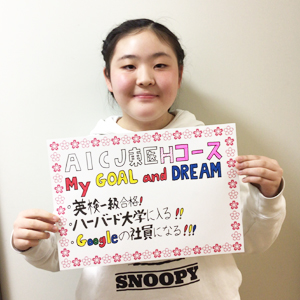 AICJ東区Hコース
My GOAL and DREAM
・英検一級合格!
・ハーバード大学に入る!!
・Googleの社員になる!!!
SNOOPY